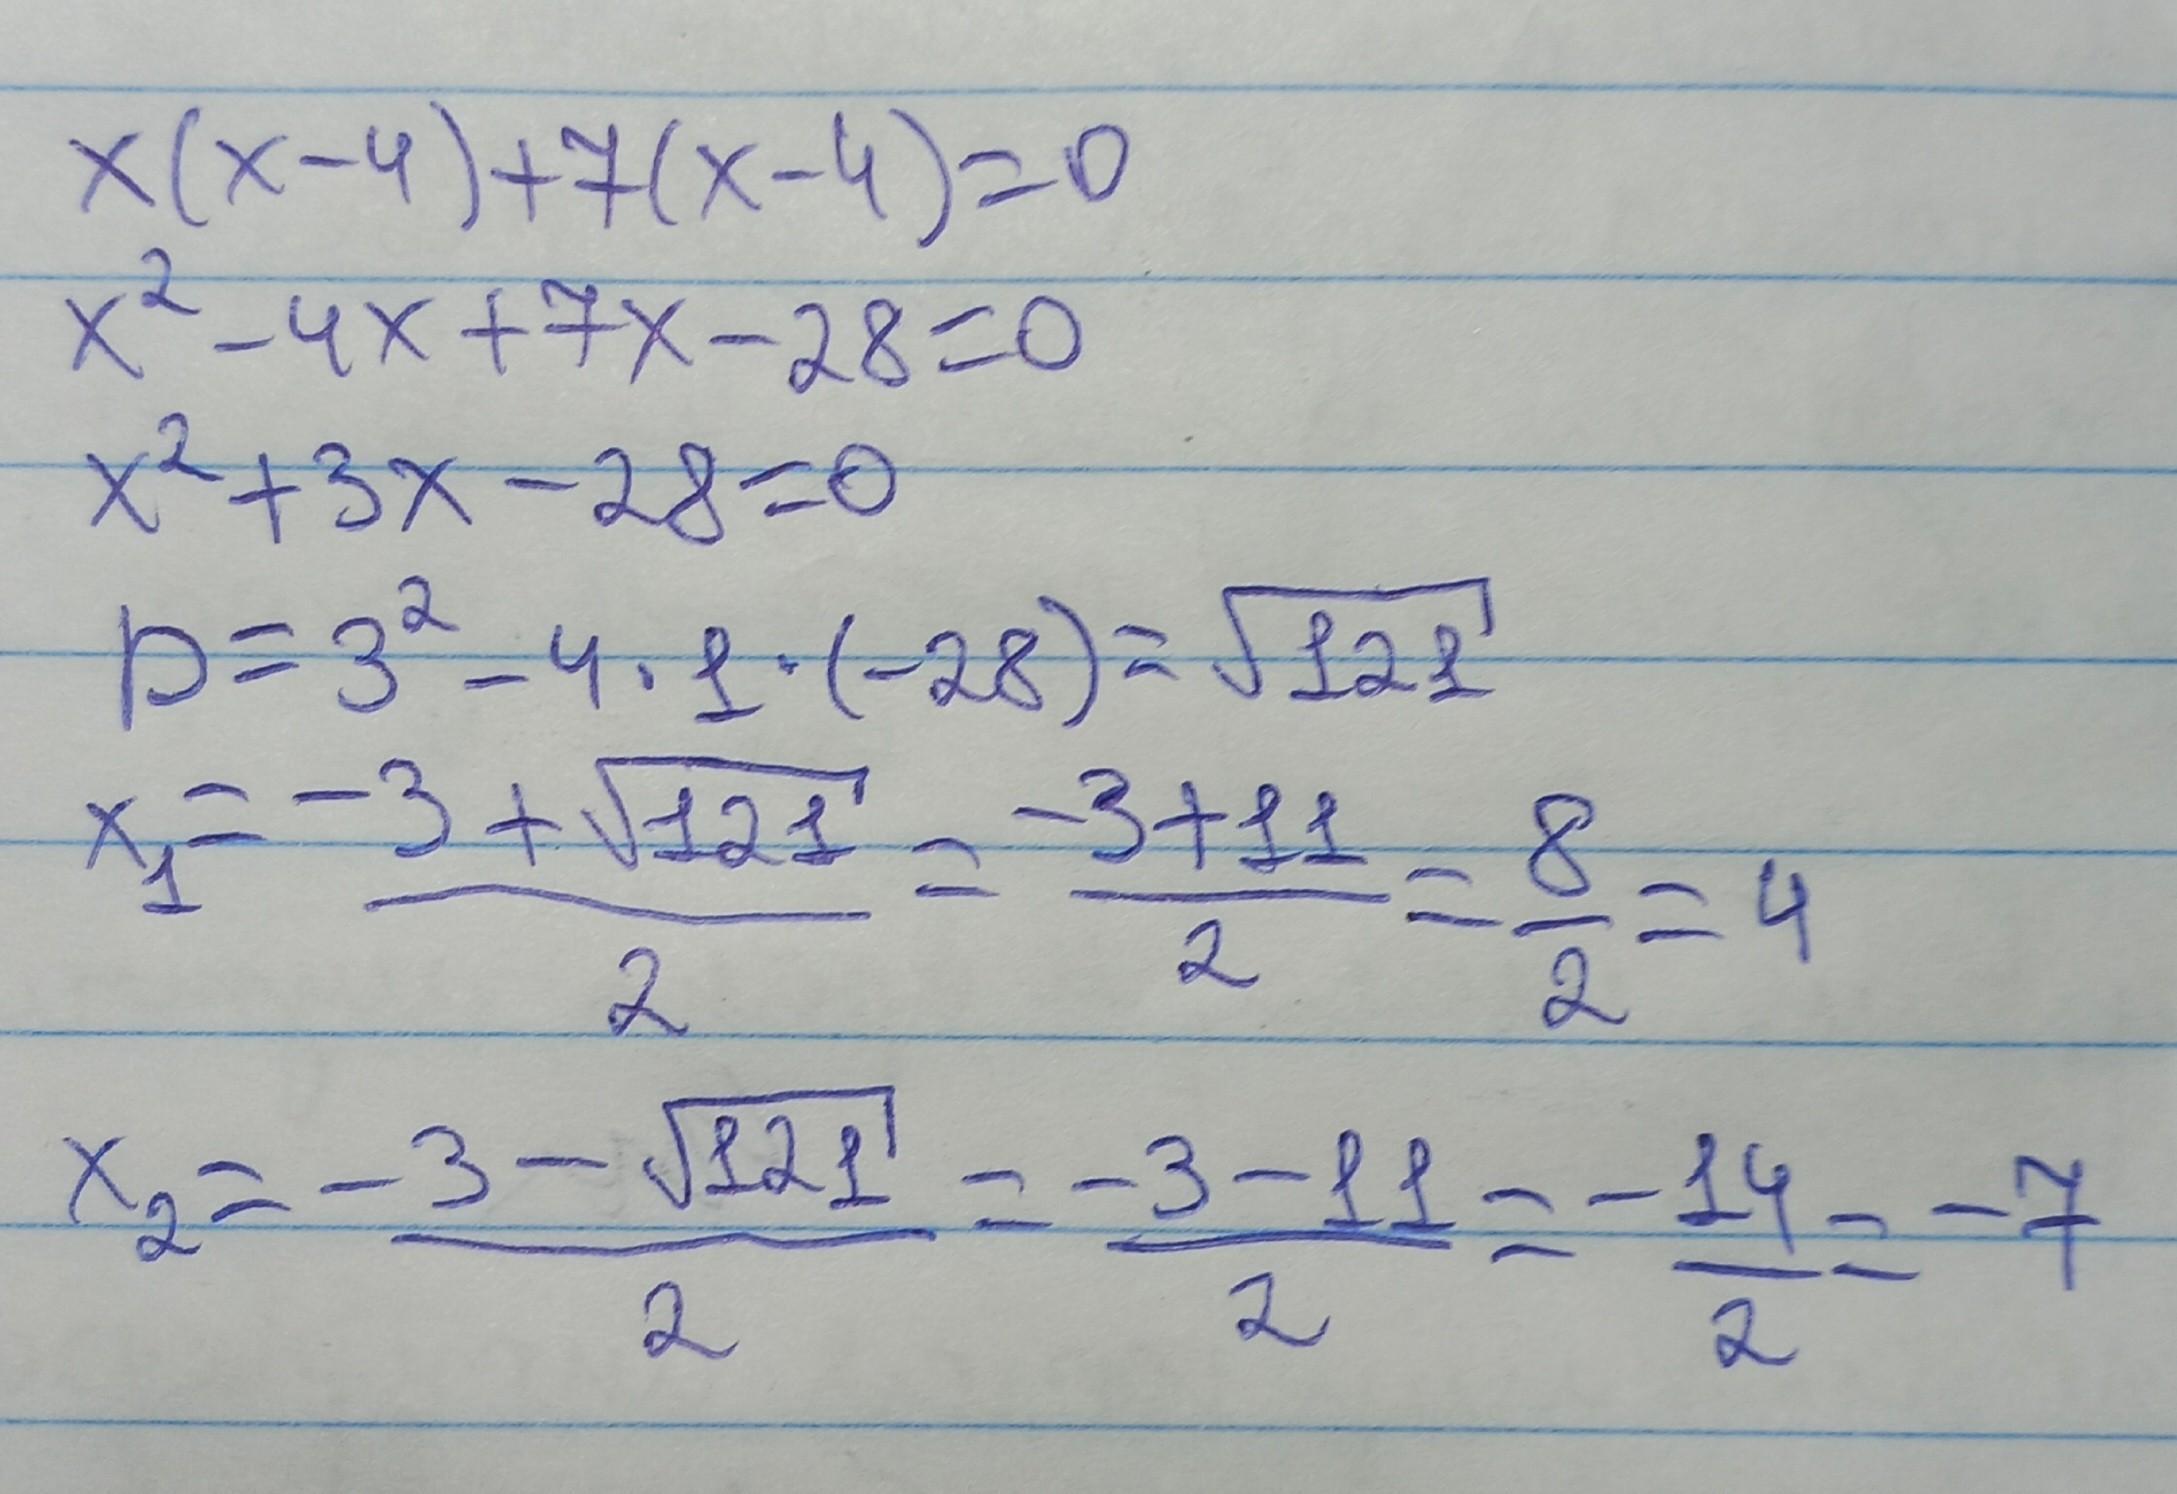 x(x-4)+7(x-4)=0
x²-4x+7x-28=0
x²+3x-28=0
D=3²-4·1·(-28)=√121
x₁=(-3+√121)/2=(-3+11)/2=8/2=4
x₂=(-3-√121)/2=(-3-11)/2=-14/2=-7